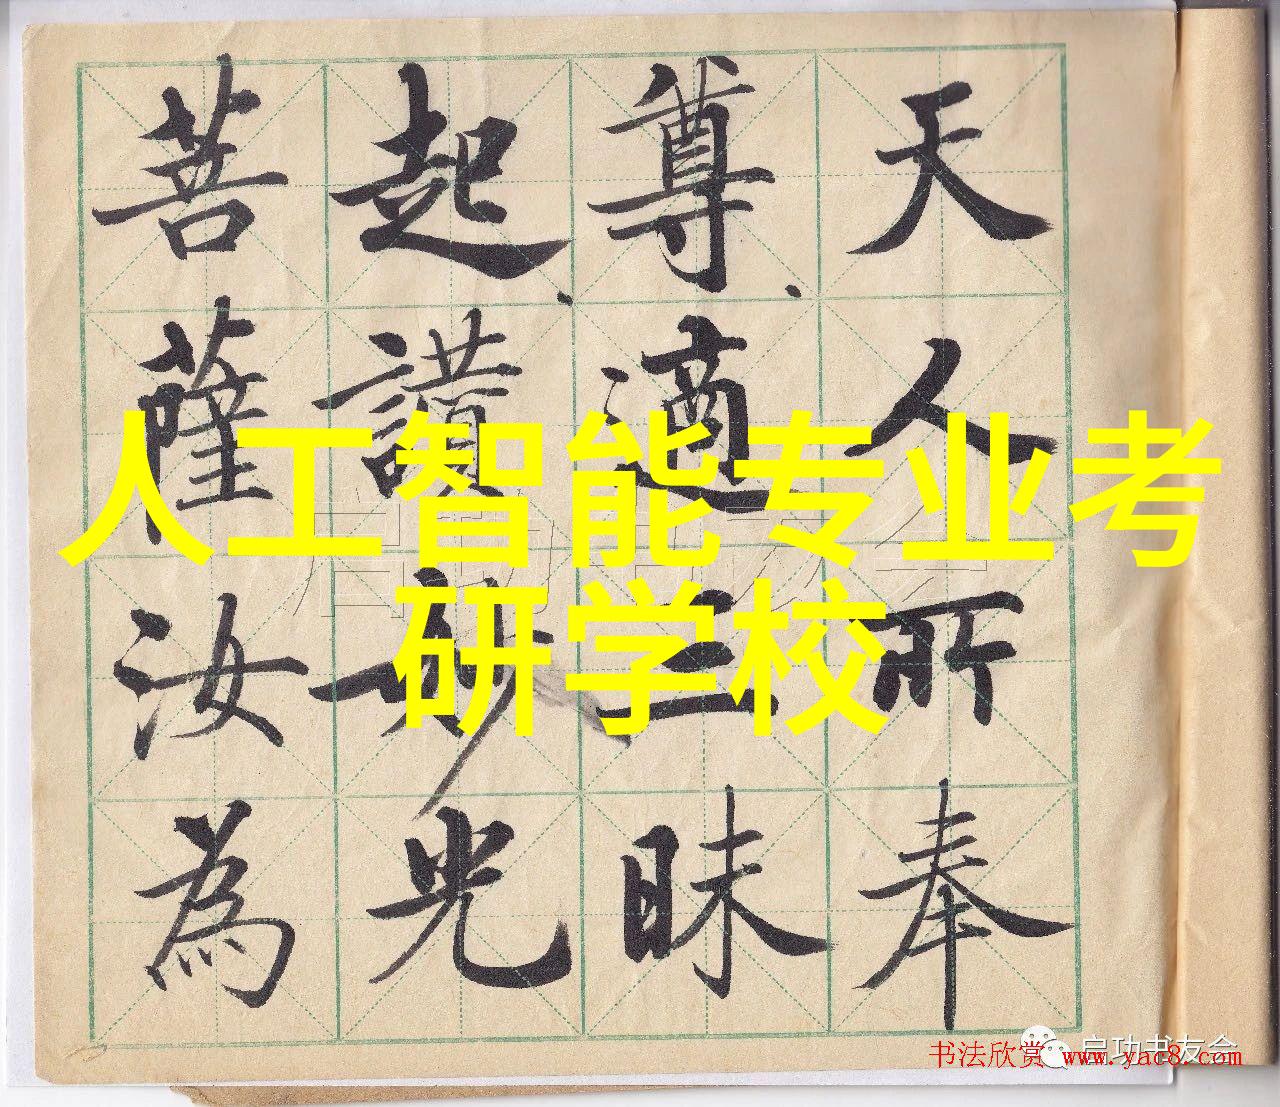 天人所奉
尊適三昧
起讃妙光
菩薩汝為
人工智能专业考
研学校
启功书友会
书法欣赏 www.yac8.com
启功书友会